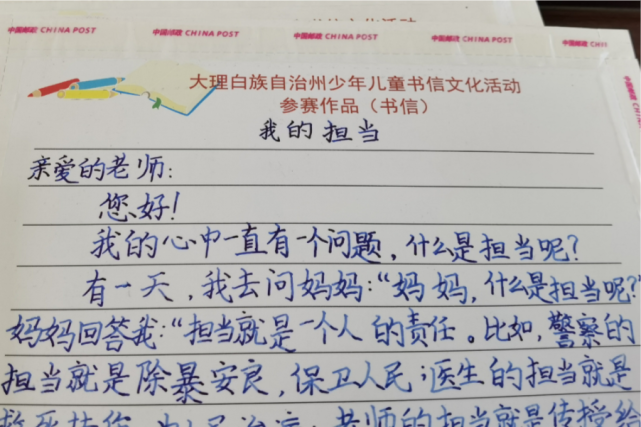 中国邮政 CHINA POST 中国邮政 CHINA POST 中国邮政 CHINA POST 中国邮政 CHI
大理白族自治州少年儿童书信文化活动
参赛作品（书信）
我的担当
亲爱的老师：
您好！
我的心中一直有一个问题，什么是担当呢？
有一天，我去问妈妈：“妈妈，什么是担当呢？”
妈妈回答我：“担当就是一个人的责任。比如，警察的
担当就是除暴安良，保卫人民；医生的担当就是
老师的担当就是传授给